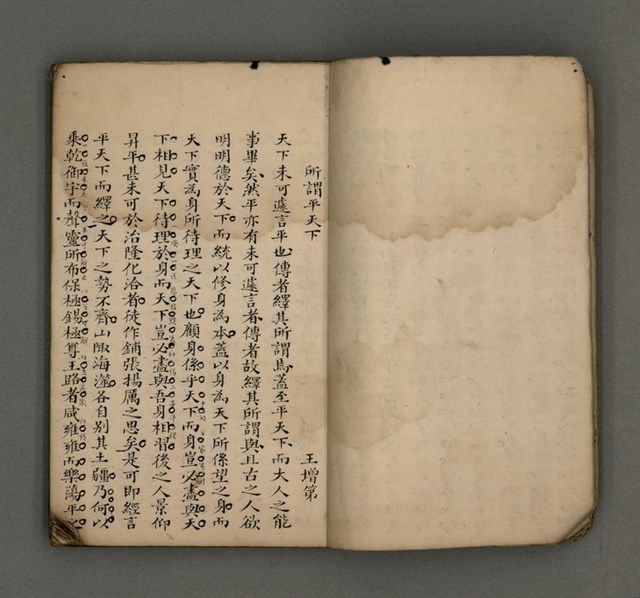 所謂平天下 王增第
天下未可遽言平也傳者繹其所謂焉蓋至平天下而大人之能
事畢矣然平亦有未可遽言者傳者故繹其所謂與且古之人欲
明明德於天下而統以修身為本蓋以身為天下所係望之身而
天下實為身所待理之天下也顧身係乎天下而身豈必盡與天
下相見天下待理於身而天下豈必盡與吾身相習後之人景仰
昇平甚未可於治隆化洽者徒作鋪張揚厲之思矣是可即經言
平天下而繹之天下之勢不齊山陬海澨各自別其土疆乃何以
乘乾御宇而聲靈所布保極錫極尊王路者咸雍雍而樂蕩平之